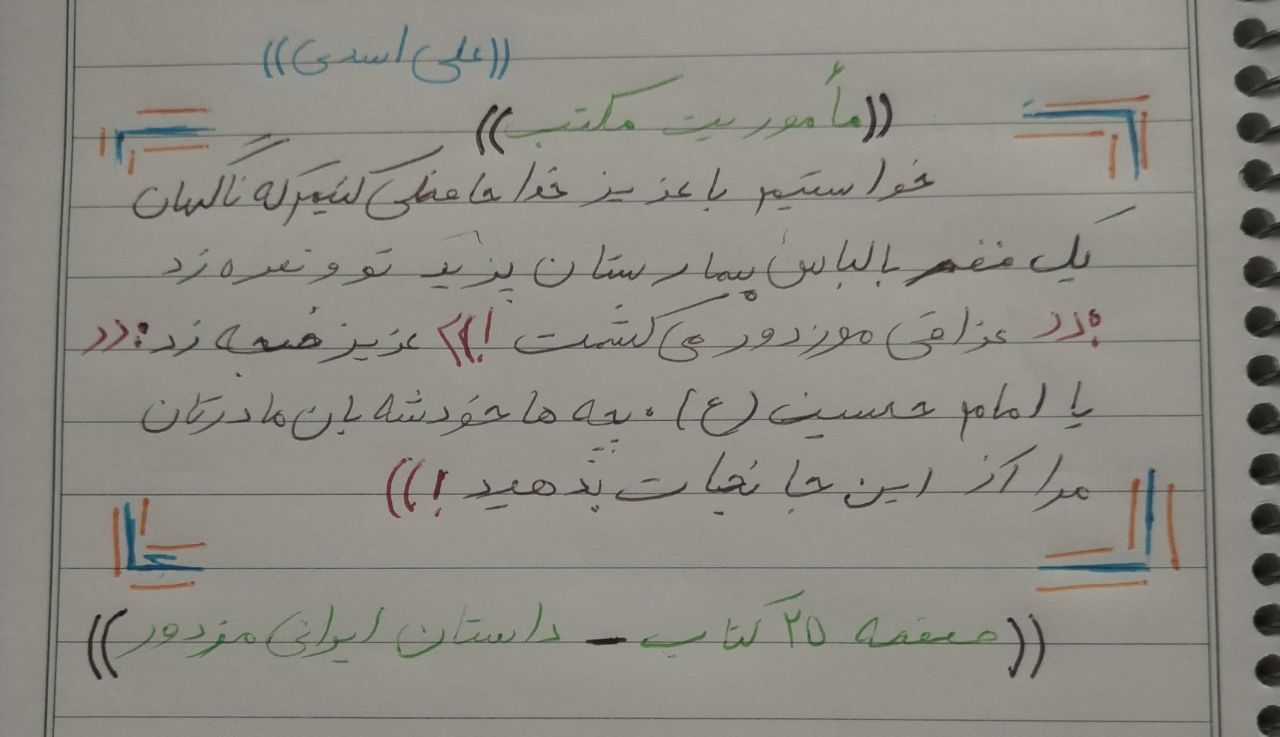 ((علی اسدی))
((مأموریت مکتب))
خواستیم با عزیز خداحافظی کنیم که ناگهان
یک نفر با لباس بیمارستان پرید تو و نعره زد
:(( عراقی مزدور می کشمت !)) عزیز ضجه زد:((
یا امام حسین (ع). بچه ها خودشه جان مادرتان
مرا از این جا نجات بدهید !))
((صفحه ۲۵ کتاب - داستان ایرانی مزدور))